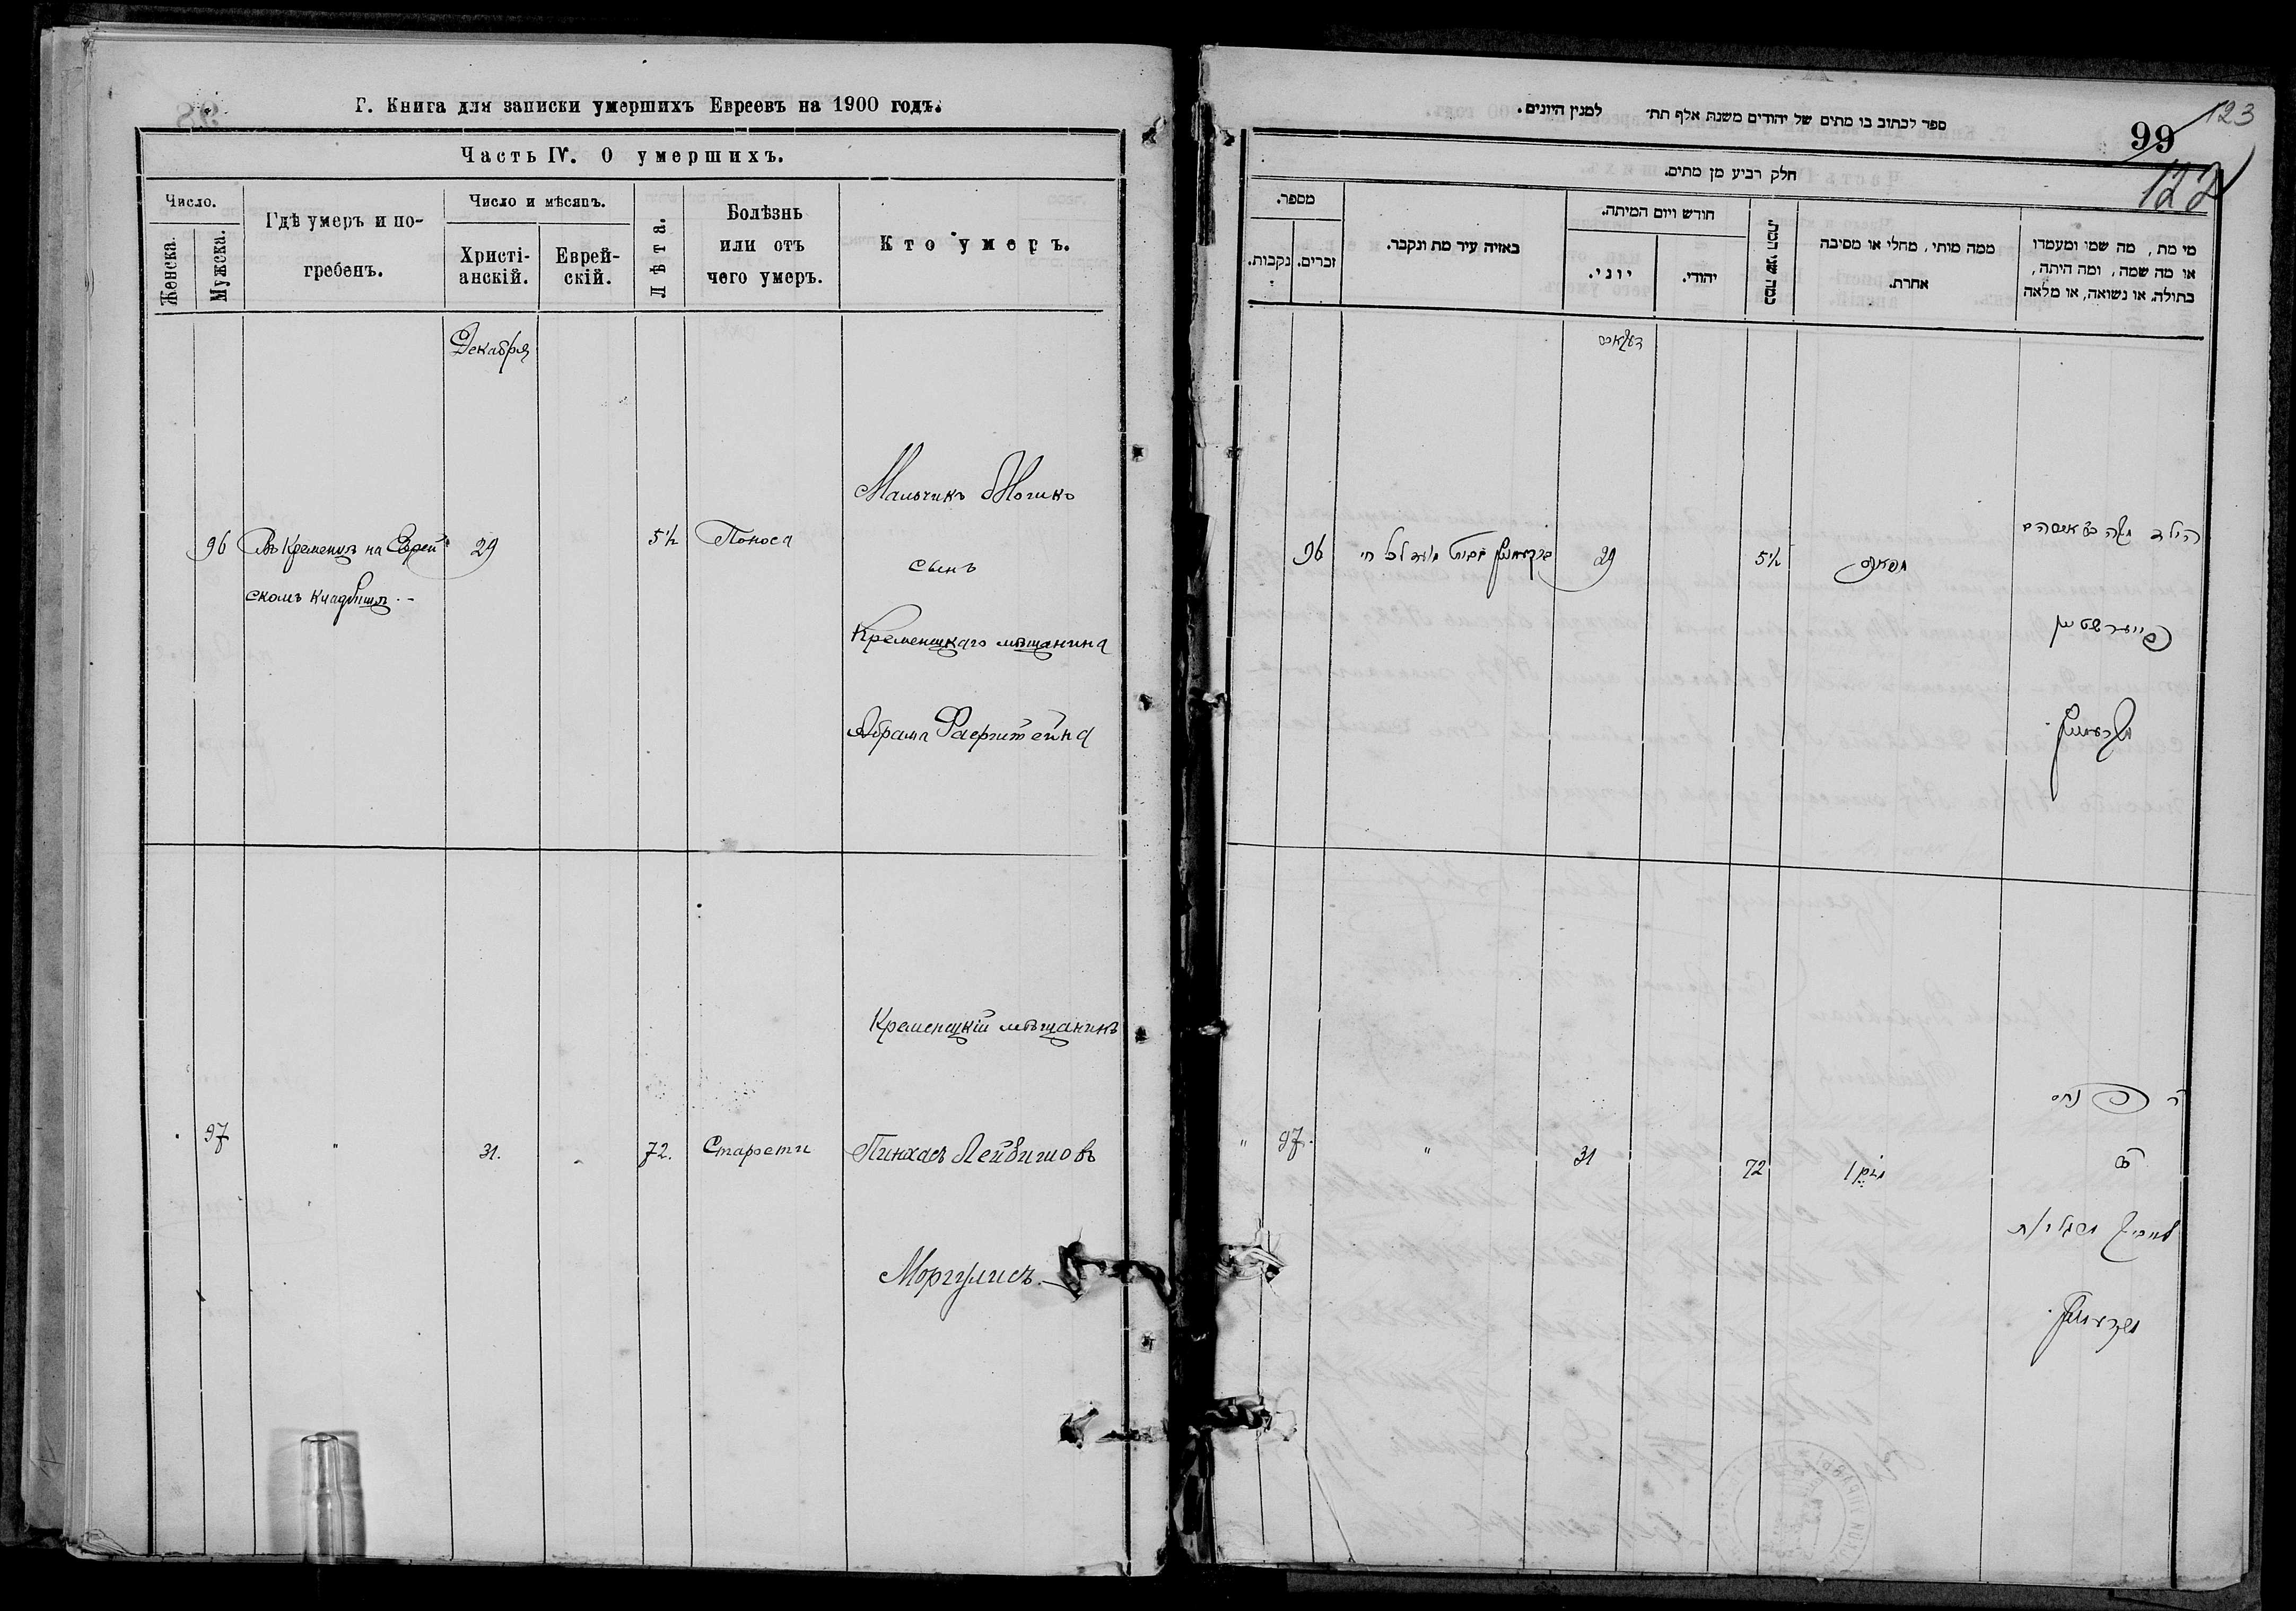 Г. Книга для записки умершихъ Евреевъ на 1900 годъ.
Часть IV. О умершихъ.
Число.
Женска.
Мужска.
Гдѣ умеръ и по-
гребенъ.
Число и мѣсяцъ.
Христі-
анскій.
Еврей-
скій.
Лѣта.
Болѣзнь
или отъ
чего умеръ.
Кто умеръ.
Декабря
96
Въ Кременцѣ на Еврей
скомъ кладбищѣ.-
29
5½
Поноса
Мальчикъ
сынъ
Кременецкаго мѣщанина
Абрама Фаерштейна
97
"
31.
72.
Старости
Кременецкій мѣщанинъ
Пинхасъ Лейбишовъ
Моргулисъ.
ספר לכתוב בו מתים של יהודים משנת אלף תת׳ למנין היונים.
99
123
122
חלק רביע מן מתים.
מספר.
נקבות.
זכרים.
באיזה עיר מת ונקבר.
חודש ויום המיתה.
יוני.
יהודי.
כמה שני המת.
ממה מותי, מחלי או מסיבה
אחרת.
מי מת, מה שמו ומעמדו
או מה שמה, ומה היתה,
בתולה. או נשואה, או מלאה
96
29
5½
הילד משה
פייערשטיין
מקרעמניץ
"
97.
"
31
72
מזקן
ר פנחס
ב״ר
לייביש מרגליות
מקרעמניץ